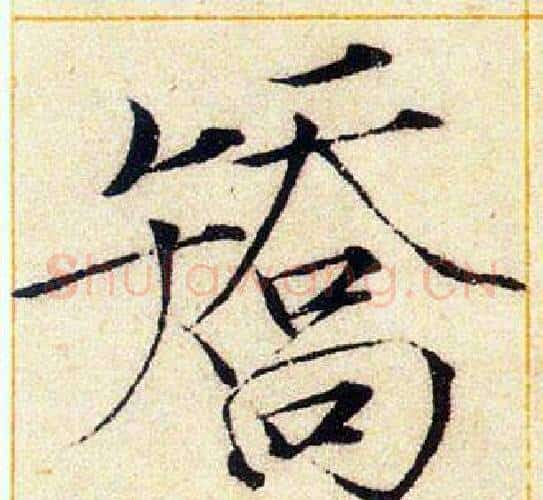 矯
Shufawang.CN